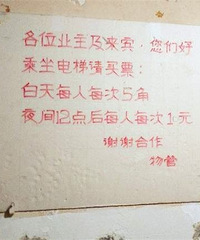 各位业主及来宾，您们好
乘坐电梯请买票：
白天每人每次5角
夜间12点后每人每次1元
谢谢合作
物管